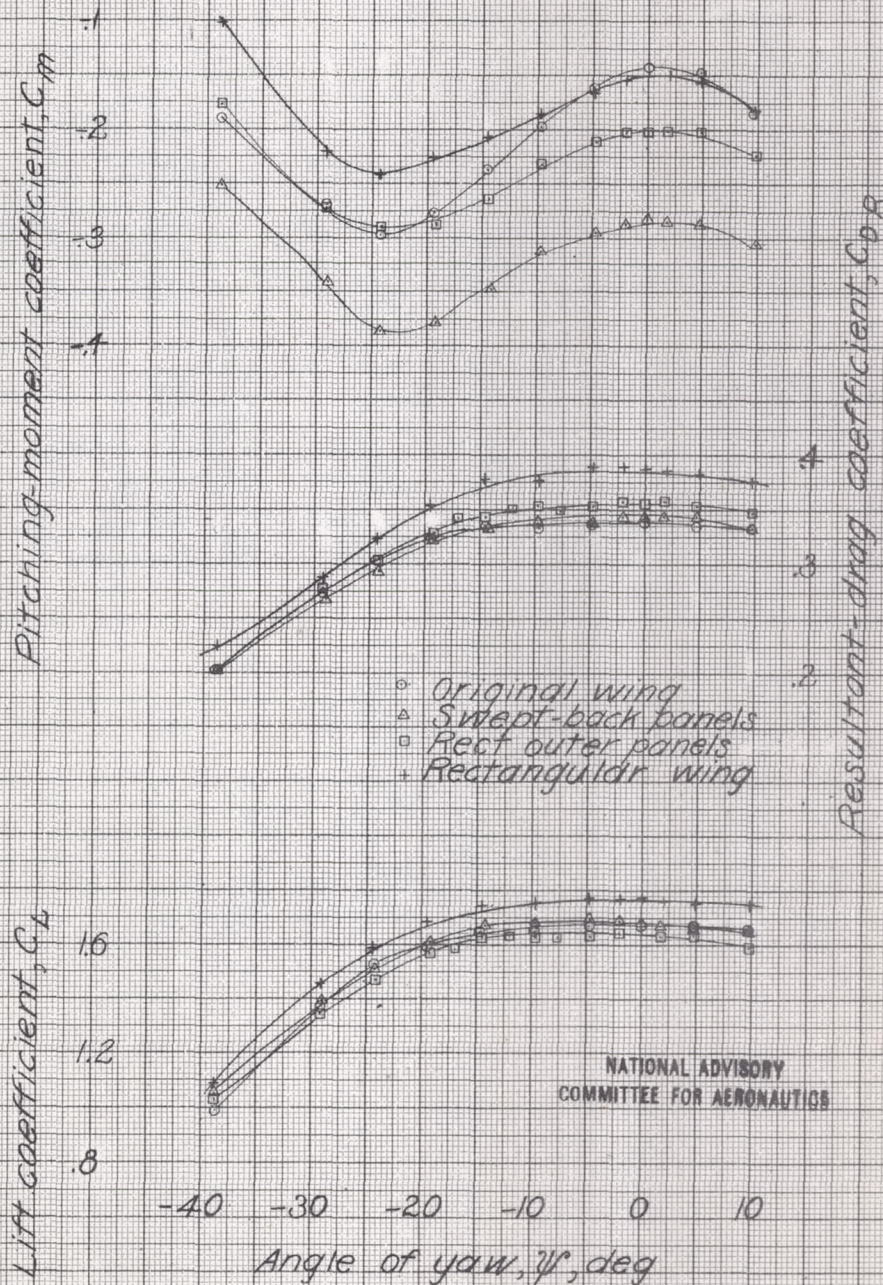 Pitching-moment coefficient, Cm
-.1
-.2
-.3
-.4
Resultant-drag coefficient, CDR
.4
.3
.2
Original wing
Swept-back panels
Rect outer panels
Rectangular wing
Lift coefficient, CL
1.6
1.2
.8
NATIONAL ADVISORY
COMMITTEE FOR AERONAUTICS
-40 -30 -20 -10 0 10
Angle of yaw, ψ, deg